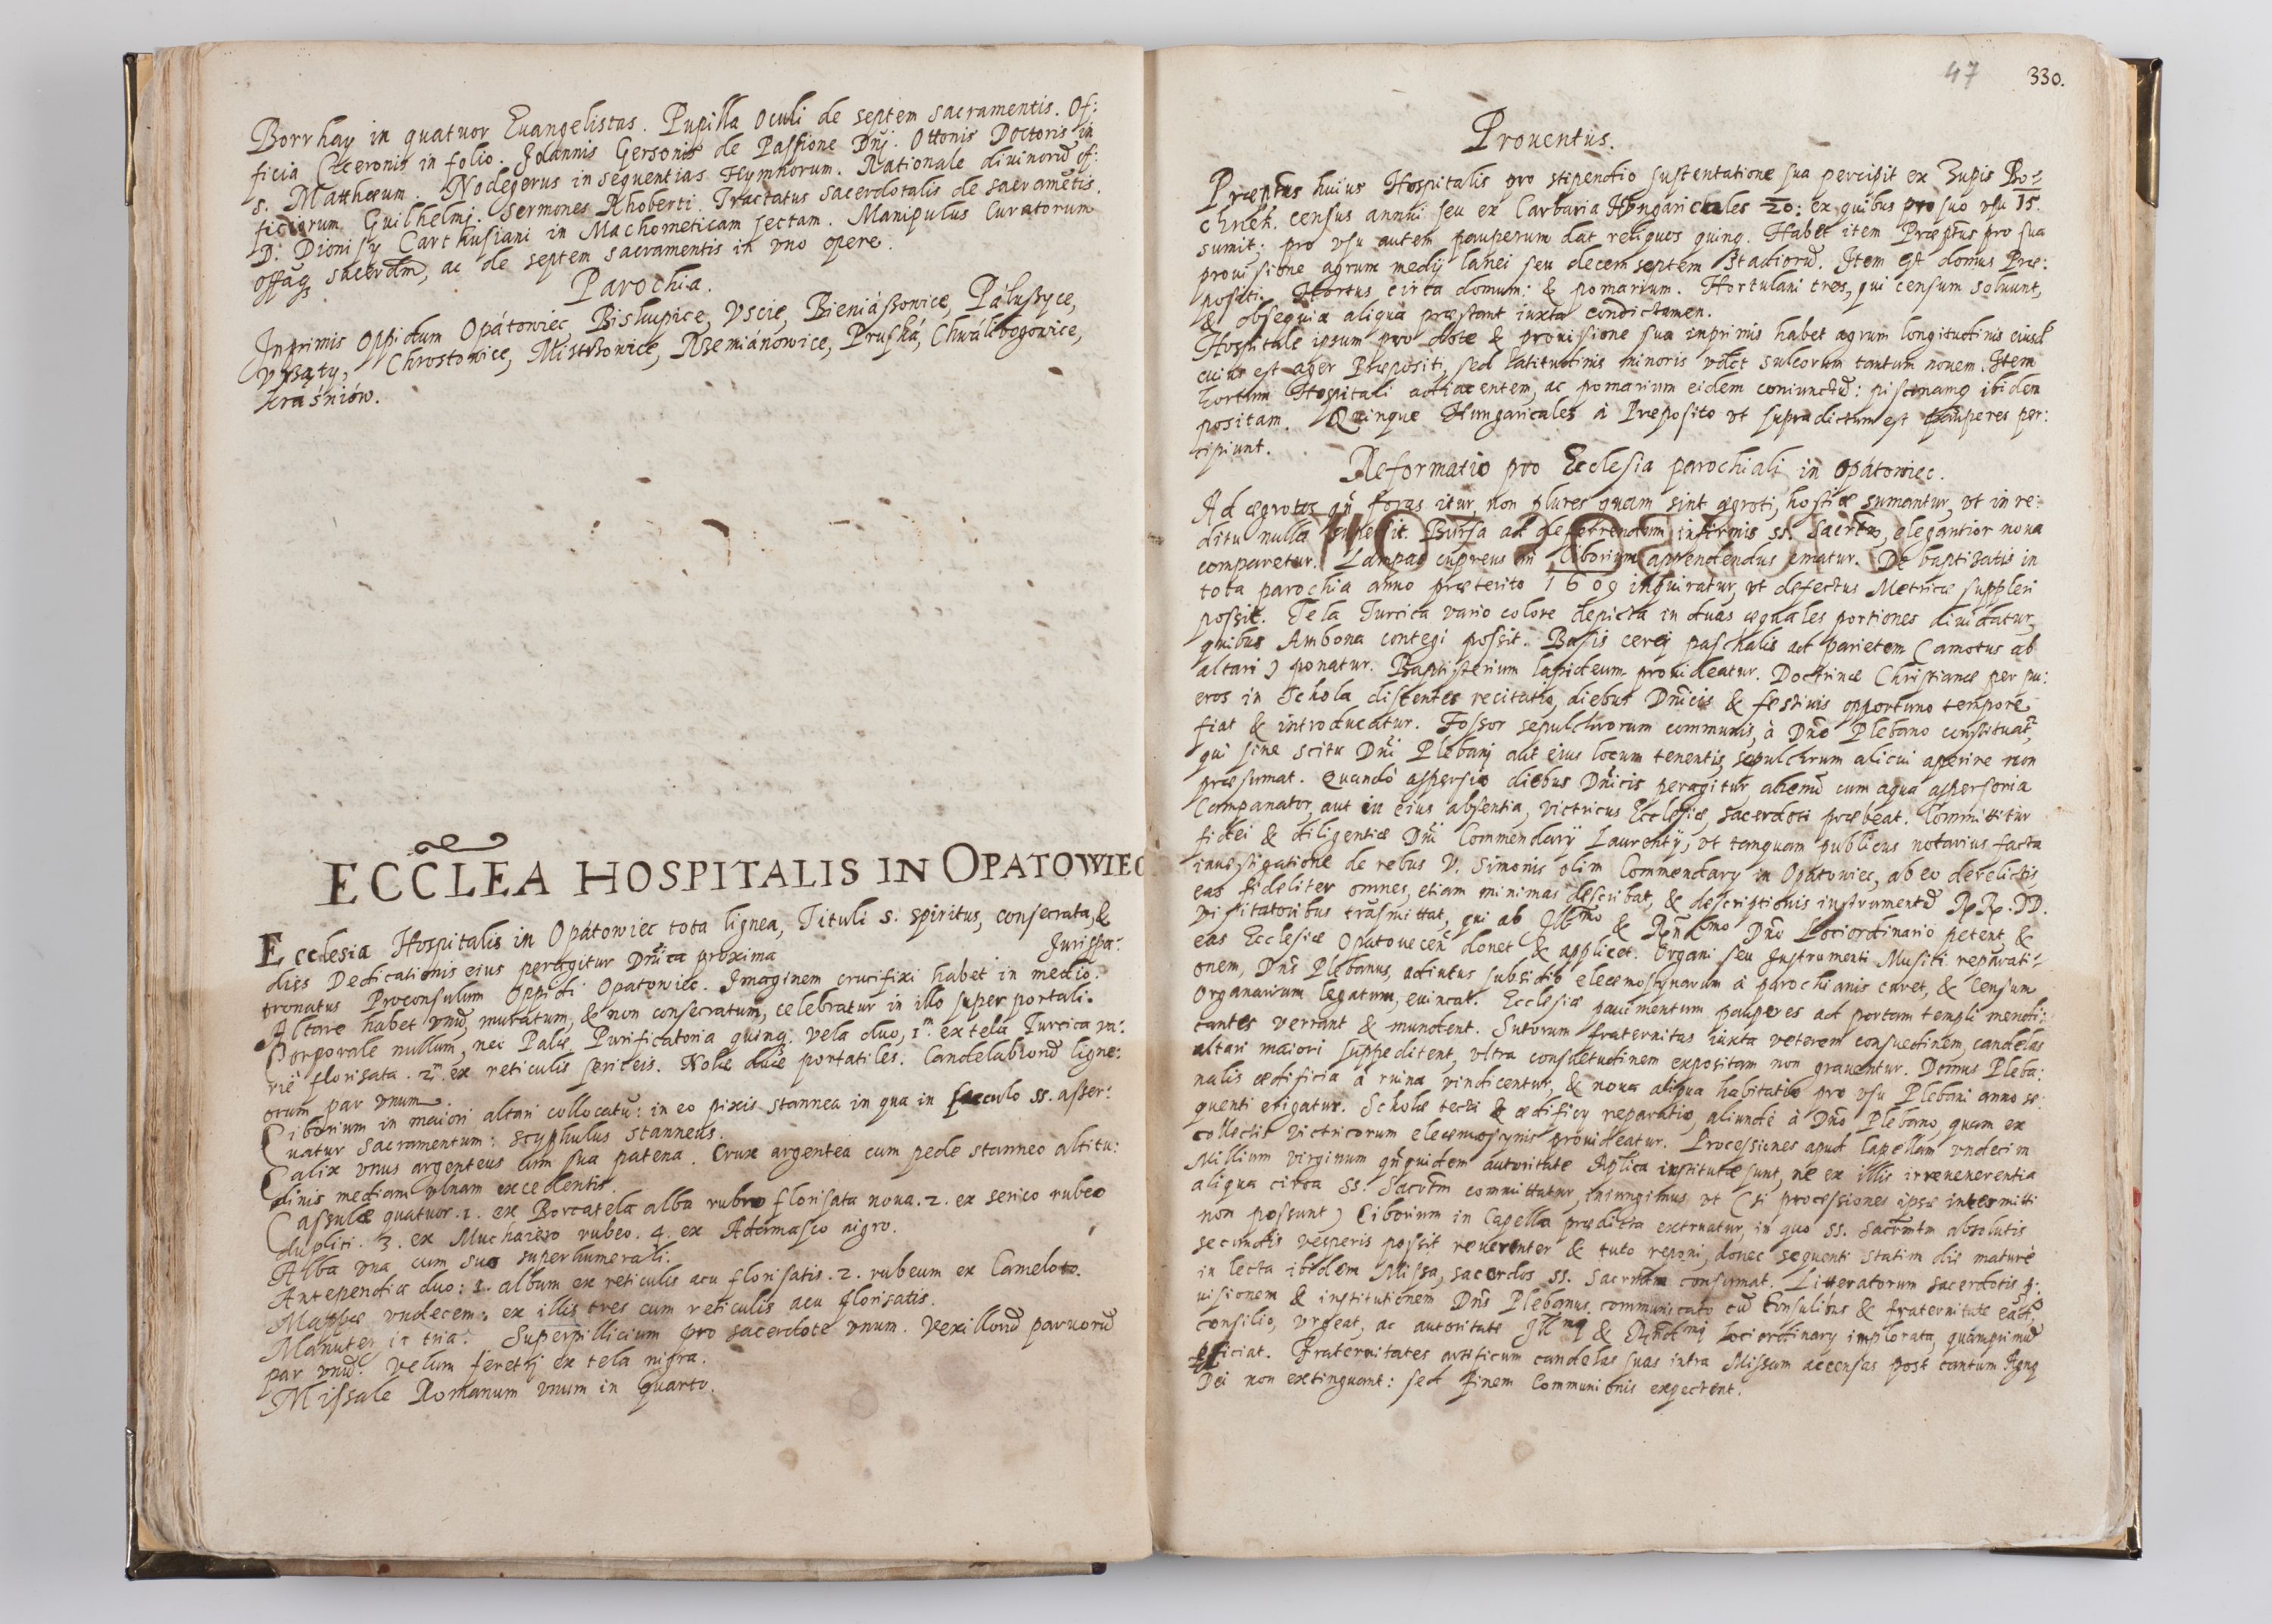 Borrhay in quatuor Euangelistas. Pupilla oculi de septem sacramentis. Of:
ficia Ciceronis in folio. Joannis Gersonis de Passione Dnj. Ottonis Doctoris in
S. Matthæum. Nodegerus in sequentias Hymnorum. Rationale diuinorũ of:
ficiorum Guilhelmj. Sermones Rhoberti. Tractatus Sacerdotalis de sacramẽtis.
D: Dionisy Carthusiani in Machometicam sectam. Manipulus Curatorum
sacerdm, ac de septem sacramentis in vno opere.
Parochia.
Inprimis Oppidum Opátowiec, Biskupice, Vscie, Bieniászowice, Páłuszyce,
Vyszáty, Chrostowice, Mistrzowice, Rzemiánowice, Pruská, Chwálibogowice,
Kráśniów.
ECCLEA HOSPITALIS IN OPATOWIEC
Ecclesia Hospitalis in Opátowiec tota lignea, Tituli S. Spiritus, consecrata, &
dies Dedicationis eius peragitur Dnica proxima Jurispa:
tronatus Proconsulum Oppidi Opatowiec. Imaginem crucifixi habet in medio.
Altare habet vnũ, muratum, & non consecratum, celebratur in illo super portali.
Corporale nullum, nec Palæ, Purificatoria quinq. Vela duo, 1m ex tela Turcica va:
riè florisata. 2m ex reticulis sericeis. Nolæ duæ portatiles. Candelabrorũ ligne:
orum par vnum.
Ciborium in maiori altari collocatũ: in eo pixis stannea in qua in sacculo SS. asser:
uatur Sacramentum: scyphulus stanneus.
Calix vnus argenteus cum sua patena. Crux argentea cum pede stanneo altitu:
dinis mediam vlnam excedentis.
Cassulæ quatuor. 1. ex Borcatela alba rubro florisata noua. 2. ex serico rubeo
duplici. 3. ex Muchaiero rubeo. 4. ex Adamasco nigro.
Alba vna cum suo superhumerali.
Antependia duo: 1. album ex reticulis acu florisatis. 2. rubeum ex Cameloto.
Mappæ vndecem: ex illis tres cum reticulis acu florisatis.
Manutergia tria. Superpillicium pro sacerdote vnum. Vexillorũ paruorũ
par vnũ. Velum feretrj ex tela nigra.
Missale Romanum vnum in quarto.
47 330.
Prouentus.
Præptus huius Hospitalis pro stipendio sustentatione sua percipit ex Zupis Bo:
chnen. census annui seu ex Carbaria Hungaricales 20: ex quibus pro suo vsu 15.
sumit; pro vsu autem pauperum dat reliquos quinq. Habet item Præptus pro sua
prouisione agrum medij lanei seu decem septem stadiorũ. Item est domus Præ:
positi. Hortus circa domum: & pomarium. Hortulani tres, qui censum soluunt,
& obsequia aliqua præstant iuxta condictamen.
Hospitale ipsum pro dote & prouisione sua inprimis habet agrum longitudinis eiusd
cuius est ager Præpositi, sed latitudinis minoris vdct sulcorum tantum nouem. Item
hortum Hospitali adiacentem, ac pomarium eidem coniunctũ: piscinamq ibidem
positam. Quinque Hungaricales à Præposito vt supradictum est pauperes per:
cipiunt.
Reformatio pro Ecclesia parochiali in Opátowiec.
Ad ægrotos qñ foras itur, non plures quam sint ægroti, hostiæ sumantur, vt in re:
ditu nulla Bursa ad deferrendum infirmis SS. Sacrtm, elegantior noua
comparetur. Lampas cupreus in Ciborium appendendus ematur. De baptizatis in
tota parochia anno præterito 1609 inquiratur, vt defectus Metricæ suppleri
possit. Tela Turcica vario colore depicta in duas æquales portiones diuidatur,
quibus Ambona contegi possit. Basis cerej paschalis ad parietem (amotus ab
altari) ponatur. Baptisterium lapideum prouideatur. Doctrinæ Christianæ per pu:
eros in Schola discentes recitatio, diebus Dnicis & festiuis opportuno tempore
fiat & introducatur. Fossor sepulchrorum communis, à Dno Plebano constituat,
qui sine scitu Dni Plebanj aut eius locum tenentis, sepulchrum alicui aperire non
præsumat. Quando aspersio diebus Dnicis peragitur ahenũ cum aqua aspersoria
Campanator, aut in eius absentia, victricus Ecclesiæ, sacerdoti præbeat. Committitur
fidei & diligentiæ Dni Commendarij Laurentij, vt tanquam publicus notarius, facta
inuestigatione de rebus V. Simonis olim Commendary in Opatowiec, ab eo derelictis,
eas fideliter omnes, etiam minimas describat, & descriptionis instrumentũ RR. DD.
Visitatoribus trãsmittat, qui ab Illmo & Rndmo Dno Lociordinario petent, &
eas Ecclesiæ Opatouecen donet & applicet. Organi seu Instrumenti Musici reparati:
onem, Dns Plebanus, adiutus subsidio eleemosynarum à parochianis curet, & Censum
Organarium legatum, euincat. Ecclesiæ pauimentum pauperes ad portam templi mendi:
cantes verrant & mundent. Sutorum fraternitas iuxta veterem consuetudinem, candelas
altari maiori suppeditent, vltra consuetudinem expositam non grauentur. Domus Pleba:
nalis ædificia à ruina vindicentur, & noua aliqua habitatio pro vsu Plebani anno se:
quenti erigatur. Scholæ tecti & ædificij reparatio, aliunde à Dno Plebano, quam ex
collectis victricorum eleemosynis prouideatur. Processiones apud Capellam vndecim
Millium virginum qñquidem autoritate Aplica institutæ sunt, ne ex illis irreuenerentia
aliqua circa SS. Sacrtm committatur, iniungimus vt (si processiones ipsæ intermitti
non possunt) Ciborium in Capella prædicta extruatur, in quo SS. Sacrmtm absolutis
secundis vesperis possit reuerenter & tuto reponi, donec sequenti statim die maturè
in lecta ibidem Missa, sacerdos SS. Sacrmtm consumat. Litteratorum sacerdotis
uisionem & institutionem Dns Plebanus, communicato cũ Consulibus & fraternitate
consilio, vrgeat, ac autoritate Illmi & Rndmi Lociordinary implorata, quamprimũ
efficiat. Fraternitates artificum candelas suas intra Missam accensas post cantum Agnq
Dei non extinguant: sed finem Communionis expectent.